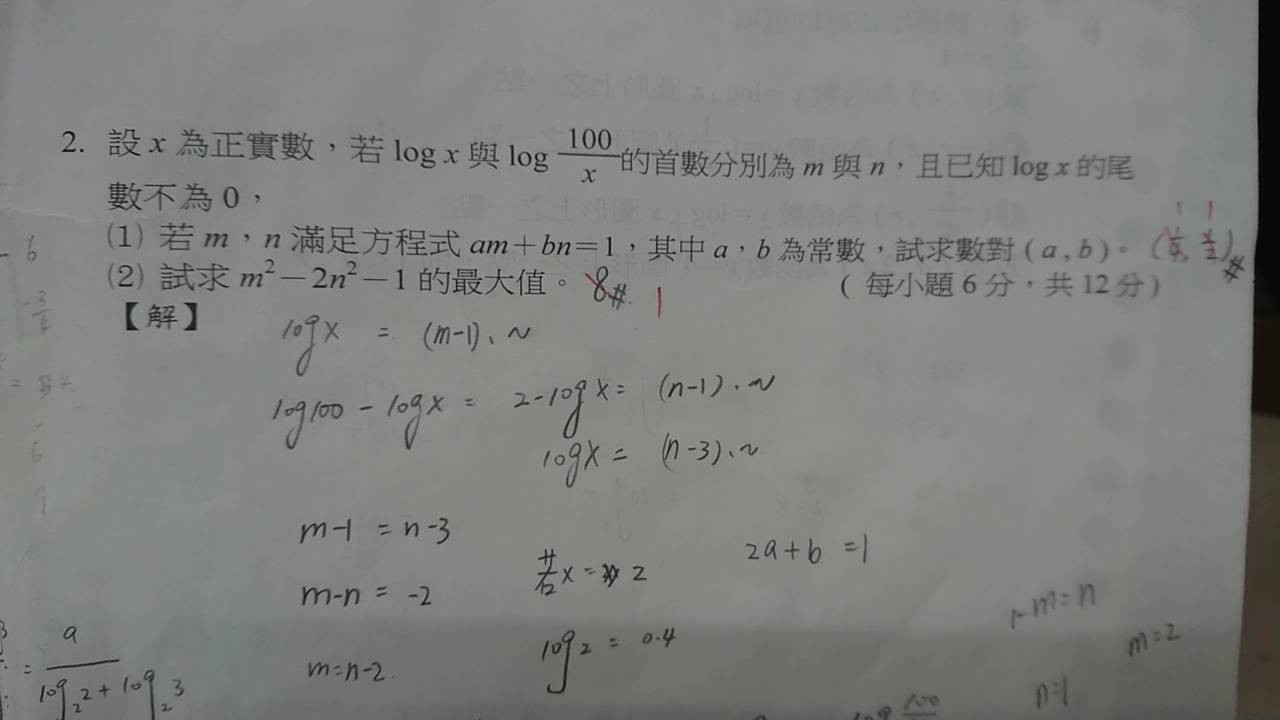 2. 設 x 為正實數，若 log x 與 log 100/x 的首數分別為 m 與 n，且已知 log x 的尾
數不為 0，
(1) 若 m，n 滿足方程式 am＋bn＝1，其中 a，b 為常數，試求數對 ( a , b )。 1 1
(2) 試求 m²－2n²－1 的最大值。 8# 1 （ 每小題 6 分，共 12 分 ）
【解】
logx = (m-1)、~
log100 - logx = 2-logx = (n-1).~
logx = (n-3)、~
m-1 = n-3
m-n = -2
m=n-2.
若x= 2
log2 = 0.4
2a+b =1
1-m=n
m=2
n=1
= a / log₂2 + log₂3
log 100